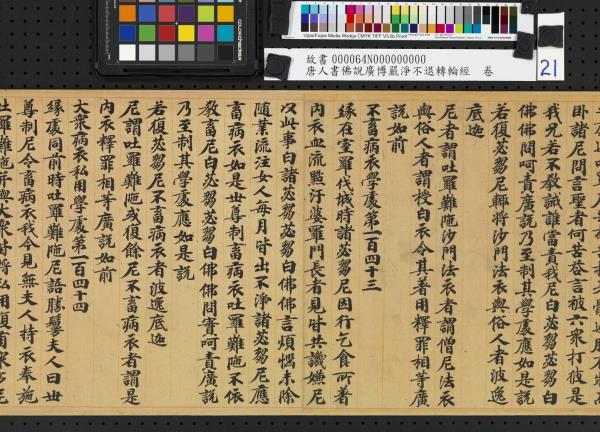 Ugra/Fogra Media Wedge CMYK TIFF V3.0b Proof
故書 000064N000000000
唐人書佛說廣博嚴淨不退轉輪經 卷
21
卧諸尼問言聖者何苦答言被六衆打彼是
我兄若不教誡誰當責我尼白苾芻苾芻白
佛佛問呵責廣說乃至制其學處應如是說
若復苾芻尼輒將沙門法衣與俗人者波逸
底迦
尼者謂吐羅難陁沙門法衣者謂僧尼法衣
與俗人者謂授白衣令其著用釋罪相等廣
說如前
不畜病衣學處第一百四十三
緣在室羅伐城時諸苾芻尼因行乞食所著
內衣血流點汙婆羅門長者見時共譏嫌尼
以此事白諸苾芻苾芻白佛佛言煩惱未除
隨業流注女人每月皆出不淨諸苾芻尼應
畜病衣如是世尊制畜病衣吐羅難陁不依
教畜尼白苾芻苾芻白佛佛問實呵責廣說
乃至制其學處應如是說
若復苾芻尼不畜病衣者波逸底迦
尼謂吐羅難陁或復餘尼不畜病衣者謂是
內衣釋罪相等廣說如前
大衆病衣私用學處第一百四十四
緣處同前時吐羅難陁尼語勝鬘夫人曰世
尊制尼令畜病衣我今見無夫人持衣奉施
吐羅難陁